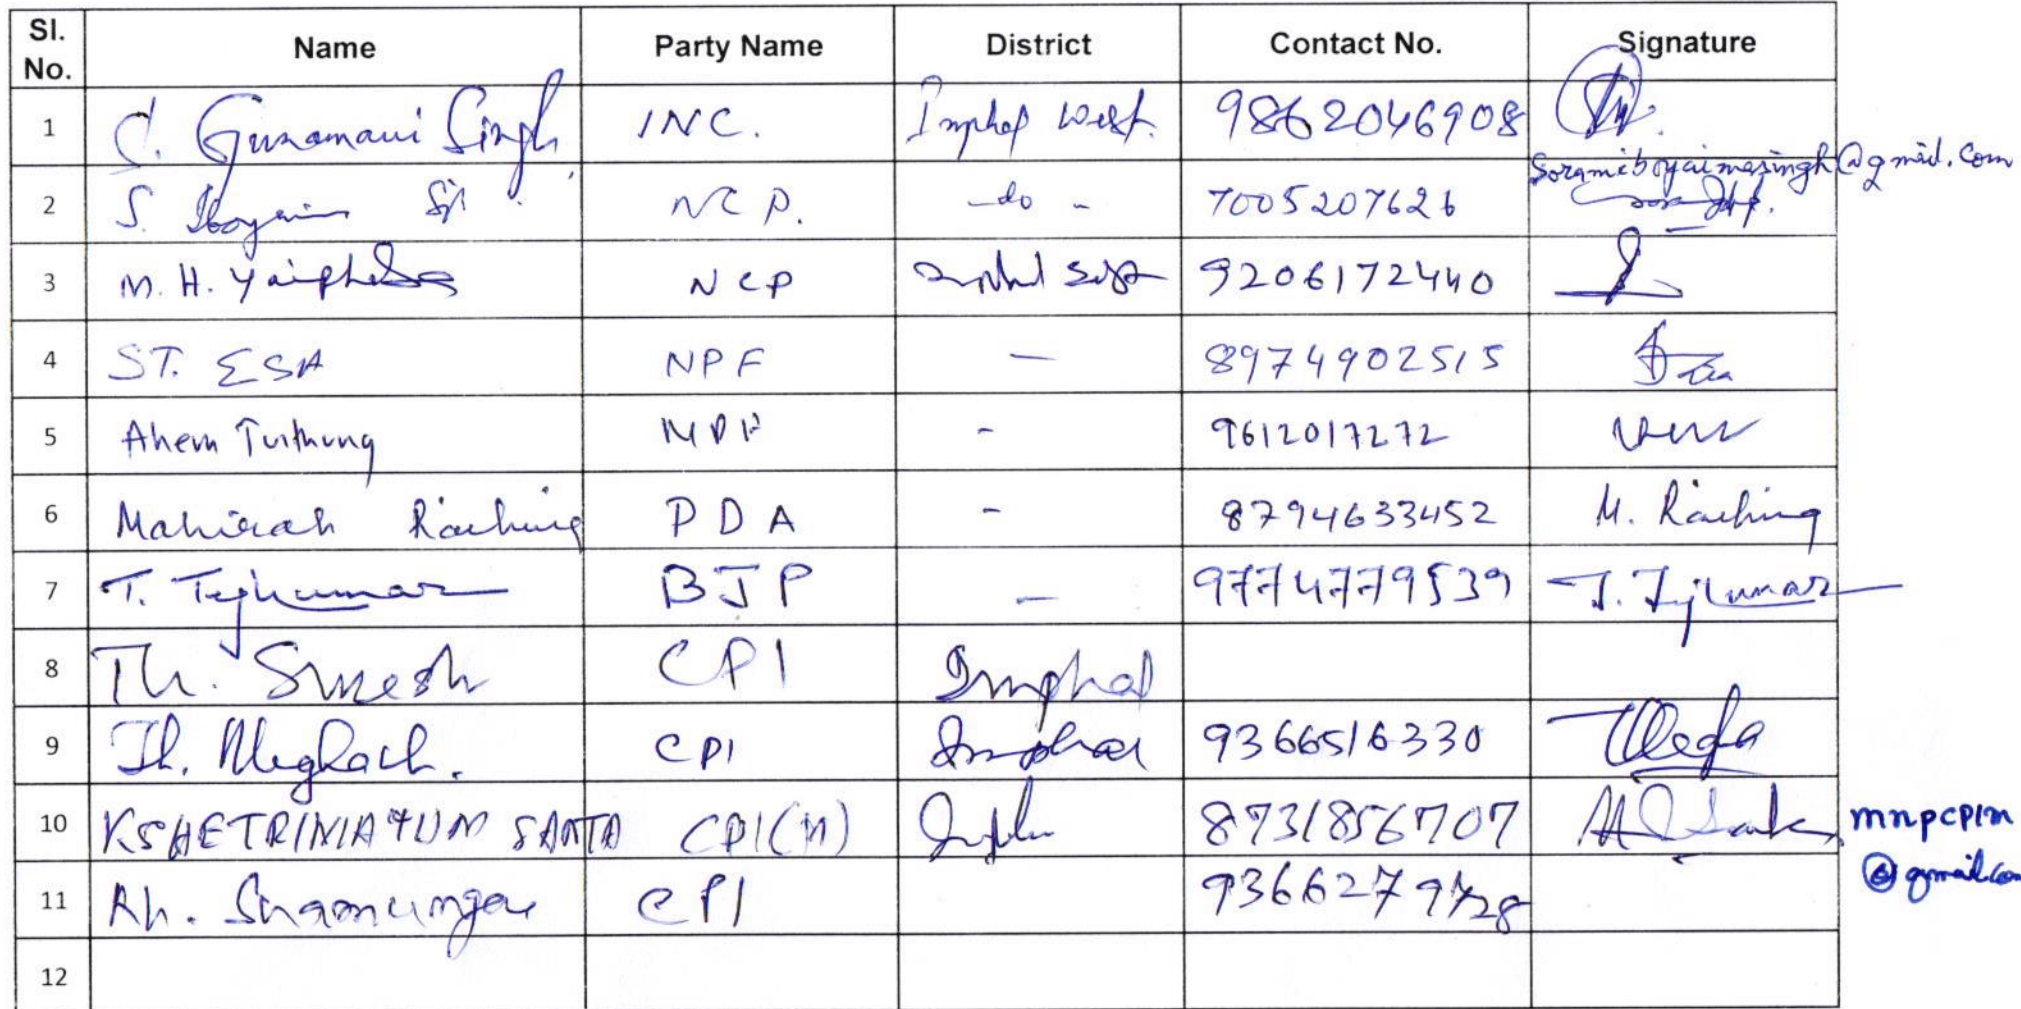 Sl. No. Name Party Name District Contact No. Signature
1 C. Gunamani Singh INC. Imphal West. 9862046908
soramiboyaimasingh@gmail.com
2 S. Iboyaima NCP. -do- 7005207626
3 M. H. Yaiphaba NCP 9206172440
4 ST. ESA NPF — 8974902515
5 Ahem Tuithung NPF - 9612017272
6 Mahirah Raiching PDA - 8794633452 M. Raiching
7 T. Tejkumar BJP — 9774779539 T. Tejkumar
8 Th. Suresh CPI Imphal
9 Th. Meghach. CPI Imphal 9366516330
10 KSHETRIMAYUM SANTA CPI(M) 8731856707 mnpcpim
@gmail.com
11 CPI
12